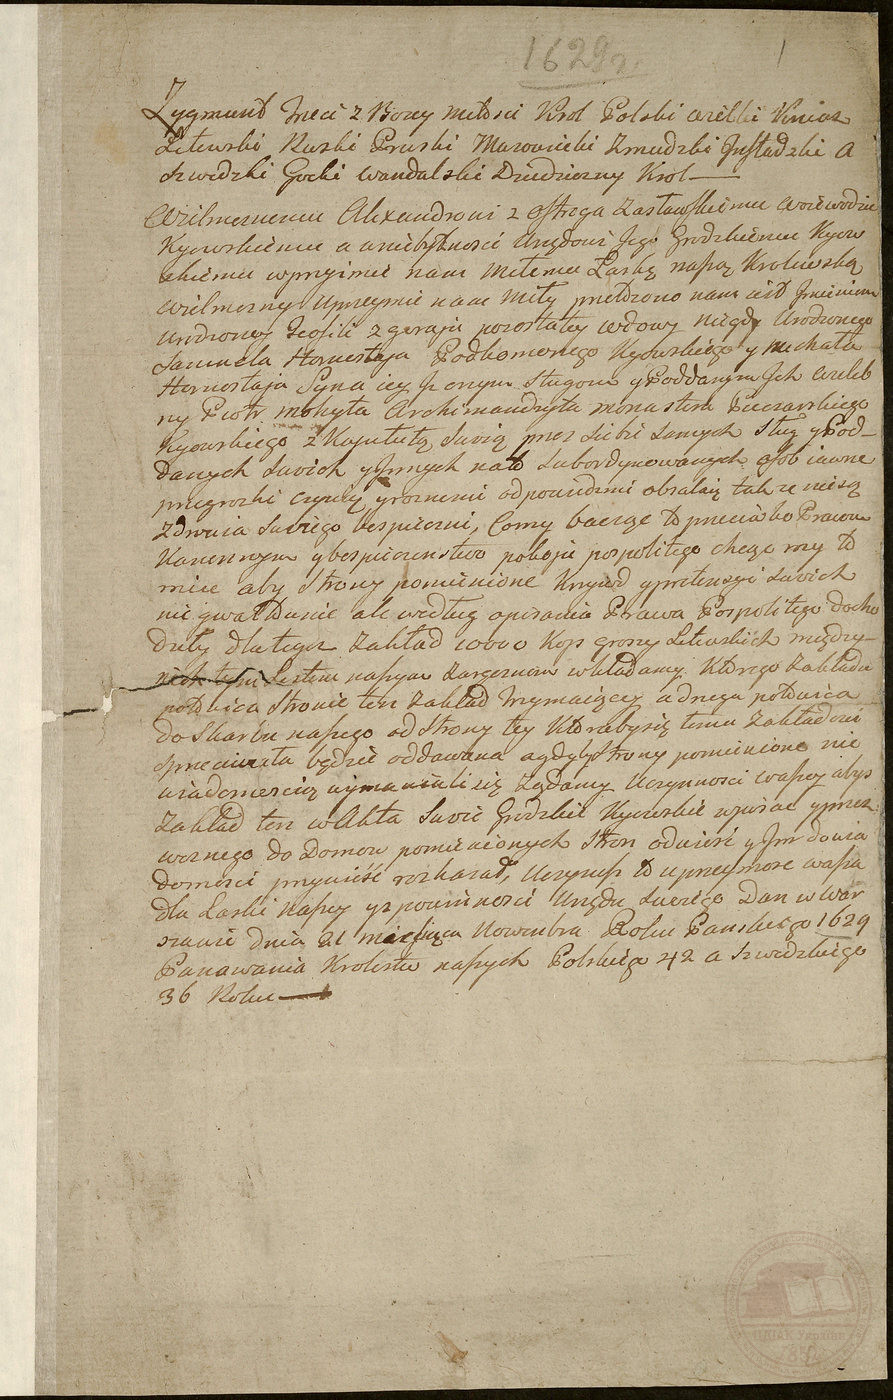 1629 r.
1
Zygmunt Trzeci z Bozey Miłosci Krol Polski Wielki Xiniaz
Litewski Ruski Pruski Mazowiecki Zmudzki Inflandzki A
Szwedzki Gocki Wandalski Dziedziczny Krol
Wielmoznemu Alexandrowi z Ostroga Zasławskiemu Woiewodzie
Kyowskiemu a w niebytnosci Urzędowi Jego Grodzkiemu Kyow
skiemu uprzyimie nam Miłemu Łaskę naszą Krolewską
Wielmozny Uprzeymie nam Miły przełozono nam iest Imieniem
Urodzoney Teofili z Goraja pozostałey wdowy Niegdy Urodzonego
Samuela Hornostaja Podkomorzego Kyowskiego y Michała
Hornostaja Syna iey I onym Sługom y Poddanym Ich Wieleb
ny Piotr Mohyła Archimandryta monastera Pieczarskiego
Kyowskiego z Kapitułą Swoią przez Siebie Samych Sług y Pod-
danych Swoich y Innych na to Subordynowanych osob iawne
przegrozki czynią y roznemi odpowiedzmi obsałaią tak ze nie są
Zdrowia Swoiego bespieczni, Co my bacząc to przeciwko Prawu
Kanennym y bespieczenstwo pokoju pospolitego chcąc my to
miec aby Strony pomienione Krzywd y pretensyi Swoich
nie gwałtownie ale według opisania Prawa Pospolitego docho
dziły dla tegoz Zakład 10000 Kop groszy Litewskich między-
nich tym Listem naszym Zaręcznim wkładamy. Ktorego Zakładu
połowica Stronie ten Zakład trzymaiącey a druga połowica
do Skarbu naszego od Strony tey Ktorabysię temu Zakładowi
Sprzeciwiała będzie oddawana a gdyby Strony pomienione nie
wiadomoscią wymawiali się Ządamy Uczynnosci waszey abys
Zakład ten w Akta Swoie Grodzkie Kyowskie wpisac y przez
woznego do Domow pomienionych Stron odnieść y Im do wia
domosci przynieść rozkazał, Uczynisz to uprzeymosc wasza
dla Łaski naszey y z powinnosci Urzędu Swoiego Dan w War
szawie dnia 21 Miesiąca Nowembra Roku Panskiego 1629
Panowania Krolestw naszych Polskiego 42 a Szwedzkiego
36 Roku